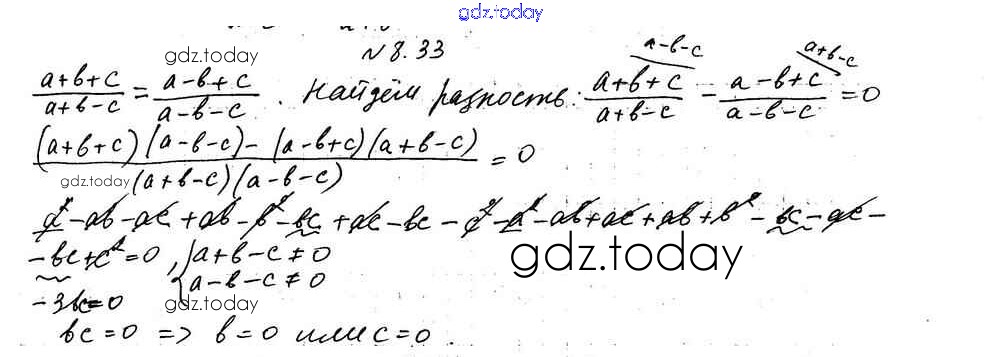 gdz.today
gdz.today
gdz.today
№ 8.33
(a+b+c)/(a+b-c) = (a-b+c)/(a-b-c). Найдём разность: (a+b+c)/(a+b-c) \ a-b-c - (a-b+c)/(a-b-c) \ a+b-c = 0
gdz.today
((a+b+c)(a-b-c)-(a-b+c)(a+b-c))/((a+b-c)(a-b-c)) = 0
gdz.today
a²-ab-ac+ab-b²-bc+ac-bc-c²-a²-ab+ac+ab+b²-bc-ac-
-bc+c²=0, { a+b-c≠0
a-b-c≠0
gdz.today
-3bc=0
gdz.today
bc=0 => b=0 или c=0.